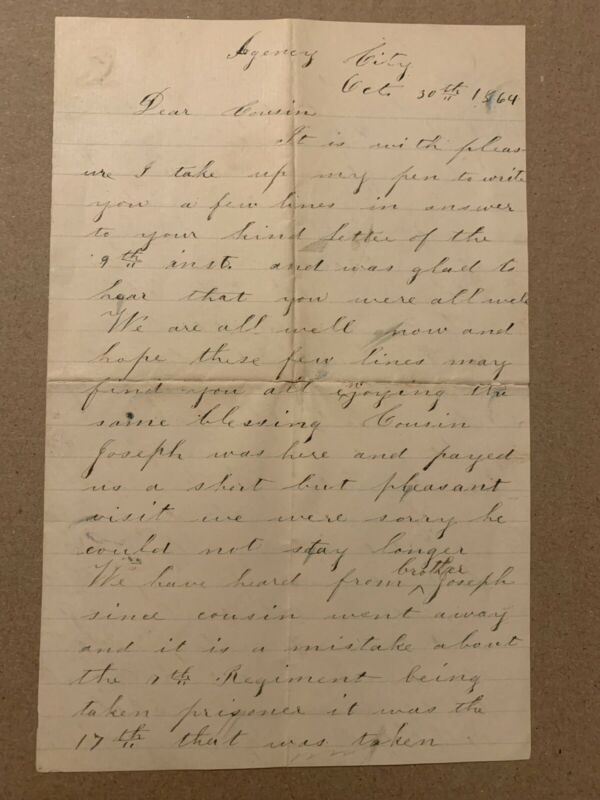 Agency City
Oct. 30th 1864
Dear Cousin
It is with pleas
ure I take up my pen to write
you a few lines in answer
to your kind letter of the
9th inst. and was glad to
hear that you were all well
We are all well now and
hope these few lines may
find you all enjoying the
same blessing Cousin
Joseph was here and payed
us a short but pleasant
visit we were sorry he
could not stay longer
We have heard from brother Joseph
since cousin went away
and it is a mistake about
the Regiment being
taken prisoner it was the
17th that was taken